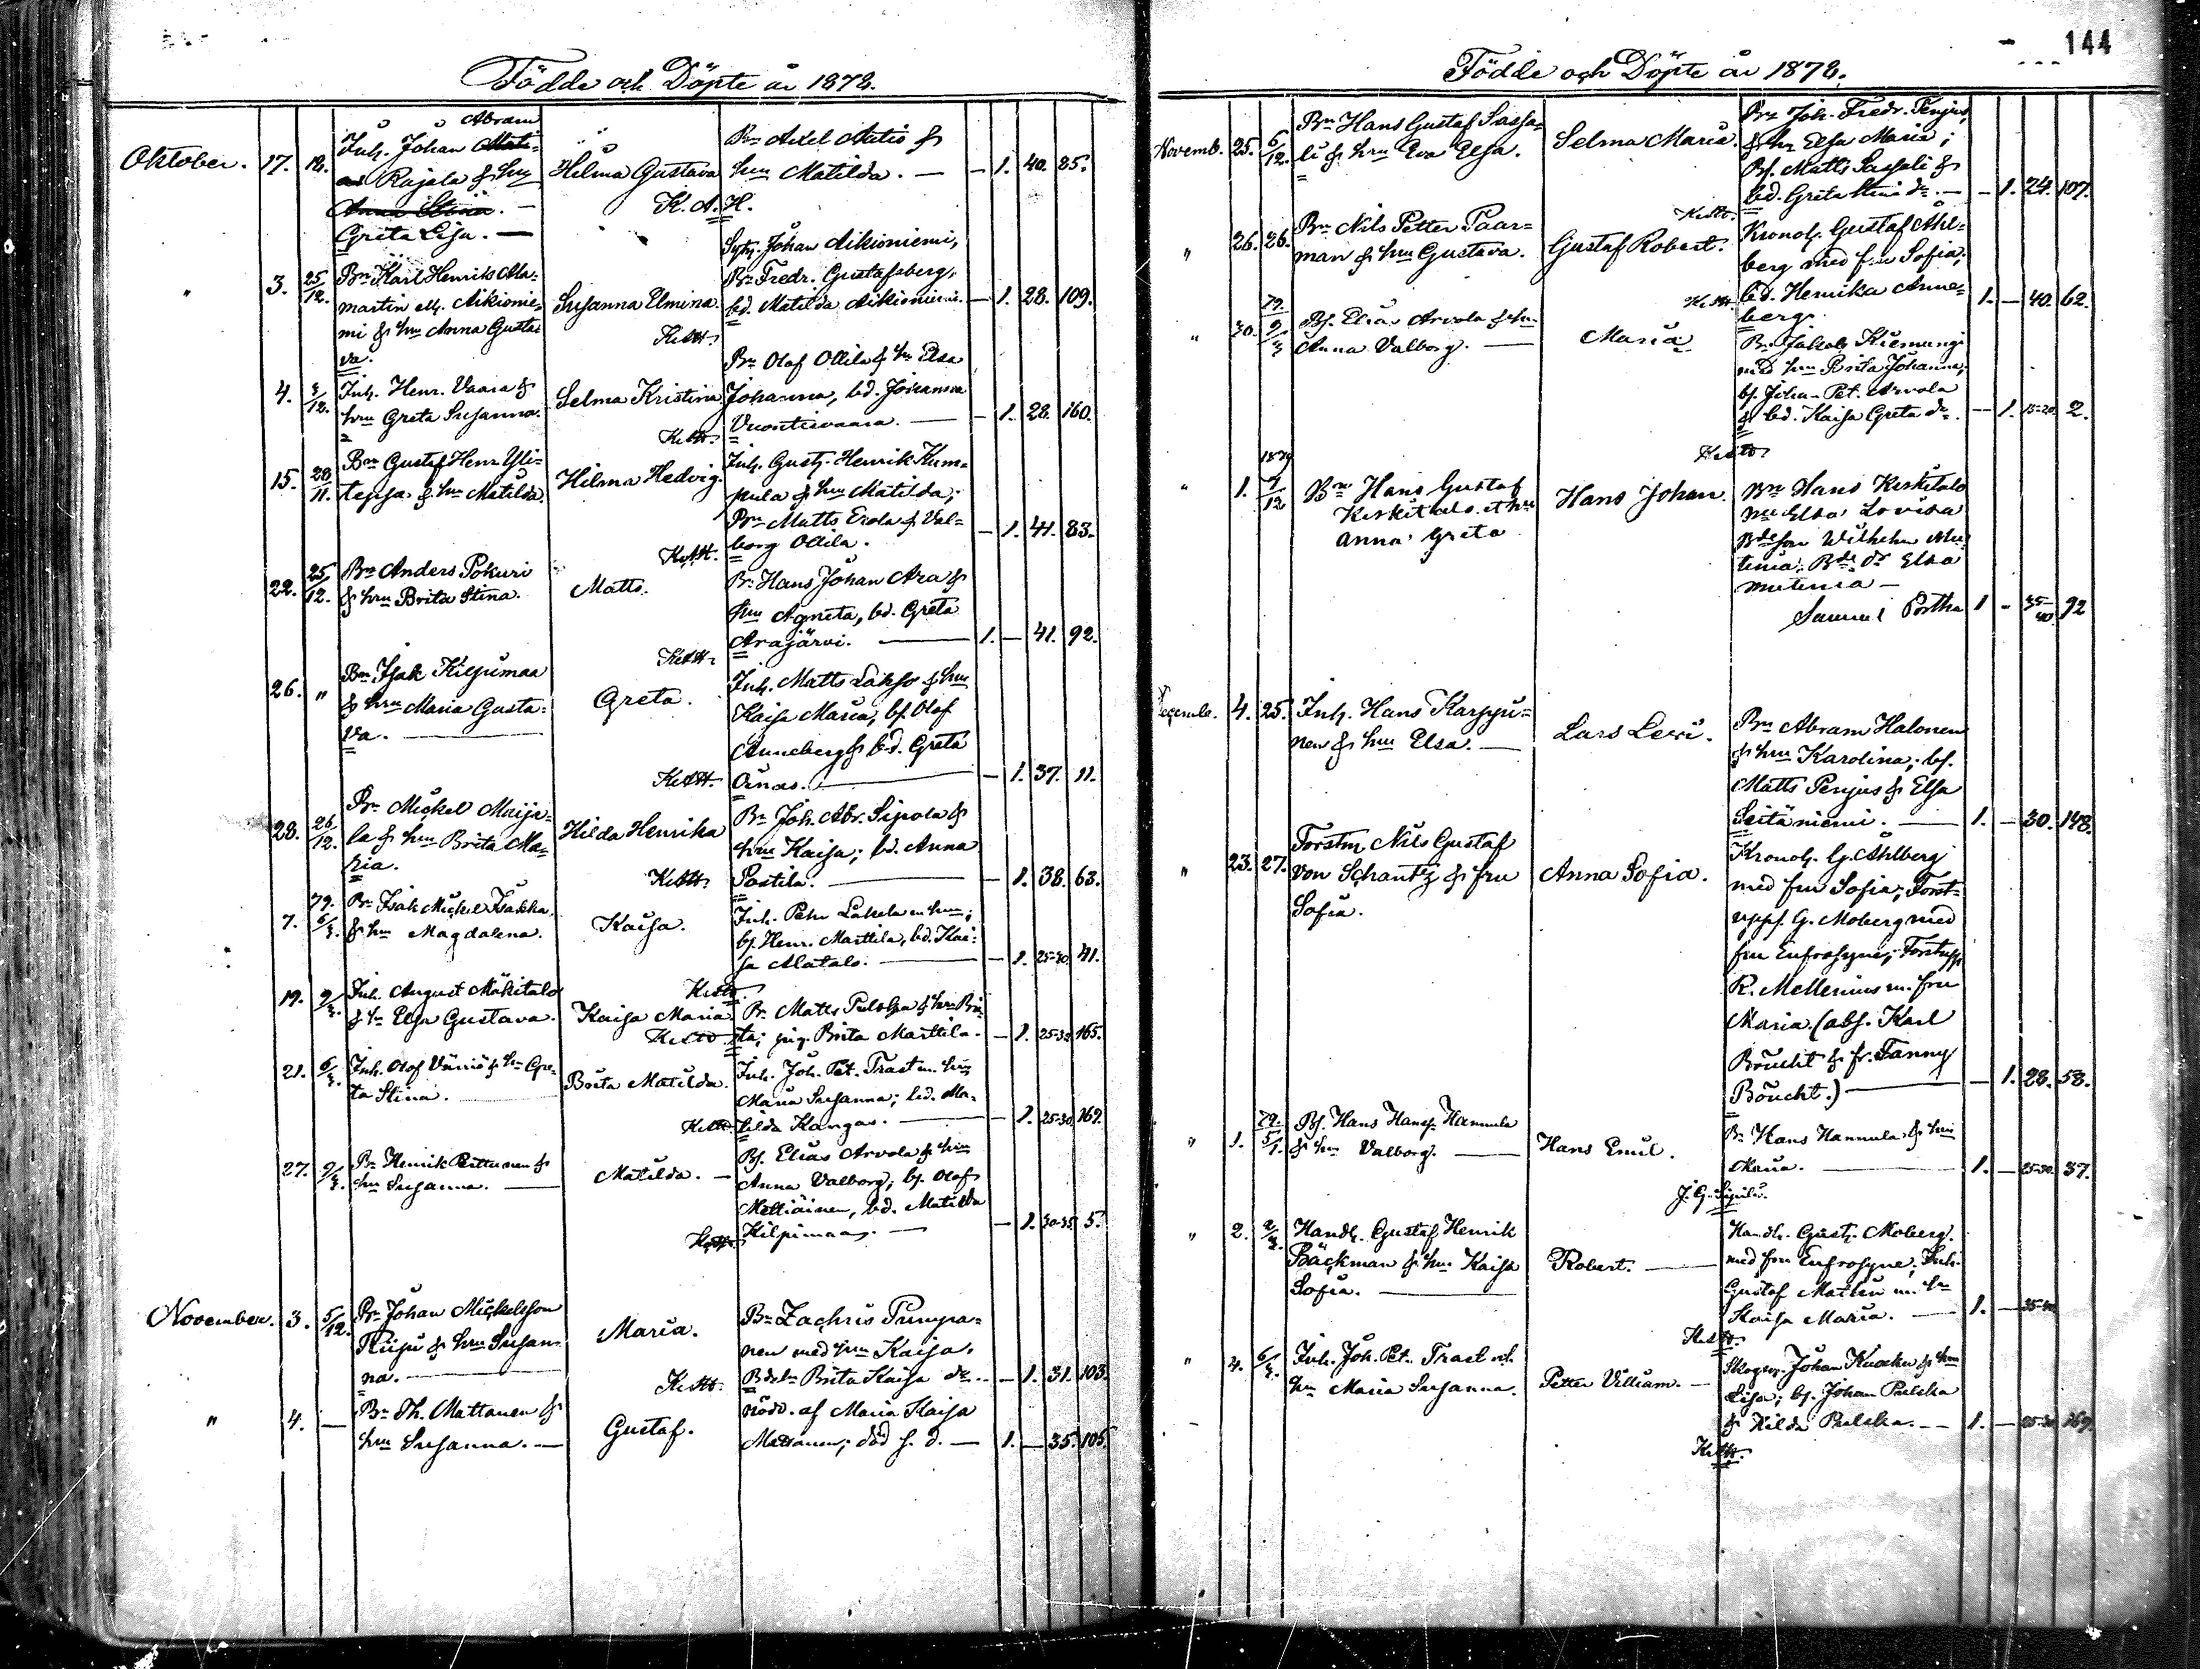 144
Födde och Döpte år 1878.
Oktober. 17. 18. Inh. Johan Abram
Rajala & hru
Anna Stina. —
Greta Lisa. —
Hilma Gustava
Bn Axel Autio &
hru Matilda. — — 1. 40. 85.
K. A. H.
" 3. 25/12. Bn Karl Henriks Ala-
martin ell. Aikionie-
mi & hru Anna Gusta-
va.
Susanna Elmina.
Sytn. Johan Aikioniemi,
Bn Fredr. Gustafsberg,
bd. Matilda Aikioniemi. — 1. 28. 109.
4. 4/12. Inh. Henr. Vaara &
hru Greta Susanna.
Selma Kristina
Bn Olof Ollila & hru Elsa
Johanna, bd. Johanna
Vuontisvaara. — — 1. 28. 160.
15. 28/11. Bn Gustaf Henr. Yli-
teppsa & hru Matilda.
Hilma Hedvig.
Inh. Gust. Henrik Kum-
pula & hru Matilda;
Bn Matts Erola & Val-
borg Ollila. — 1. 41. 83.
22. 25/12. Bn Anders Pokuri
& hru Brita Stina.
Matts.
Bn Hans Johan Ara &
hru Agneta, bd. Greta
Arajärvi. — 1. — 41. 92.
26. " Bn Isak Kilpimaa
& hru Maria Gusta-
va. —
Greta.
Inh. Matts Lakso & hru
Kaisa Maria, bs. Olof
Anneberg & bd. Greta
Oinas. — — 1. 37. 11.
28. 26/12. Bn Mickel Maija-
la & hru Brita Ma-
ria.
Hilda Henrika
Bn Joh. Abr. Sipola &
hru Kaisa; bd. Anna
Postila. — — 1. 38. 63.
7. 79. 6/3. Bn Isak Mickel Isakka
& hru Magdalena.
Kaisa.
Inh. Petter Lakela m. hru;
bs. Henr. Marttila, bd. Kai-
sa Matalo. — — 1. 25-30. 41.
19. 9/3. Inh. August Mäkitalo
& hru Elsa Gustava.
Kaisa Maria
Bn Matts & hru Bri-
ta; pig. Brita Marttila. — 1. 25-30. 165.
21. 6/3. Inh. Olof Väiniö & hru Gre-
ta Stina.
Brita Matilda.
Inh. Joh. Pet. Trast m. hru
Maria Susanna; bd. Ma-
tilda Kangas. — — 1. 25-30. 169.
27. 9/3. Bn Henrik Perttunen &
hru Susanna. —
Matilda. —
Bs. Elias Arvola & hru
Anna Valborg; bs. Olof
bd. Matilda
Kilpimaa. — — 1. 30-35. 5.
November. 3. 5/12. Bn Johan Mickelsson
Kuiju & hru Susan-
na. —
Maria.
Bn Zachris Pumpa-
nen med hru Kaisa.
Brita Kaisa do. — 1. 31. 103.
" 4. — Bn Th. Mattanen &
hru Susanna. —
Gustaf.
nödd. af Maria Kaisa
Mattanen; död s. d. — 1. — 35. 105.
Födde och Döpte år 1878.
Novemb. 25. 5/12. Bn Hans Gustaf Sassa-
li & hru Eva Elsa.
Selma Maria.
Bn Joh. Fredr. Perjus,
& hru Elsa Maria;
Bs. Matts Sassali &
bd. Greta Stina do. — — 1. 24. 107.
" 26. 26. Bn Nils Petter Paar-
man & hru Gustava.
Gustaf Robert.
Kronol. Gustaf Åhl-
berg med fru Sofia;
bd. Henrika Anne-
berg. 1. — 40. 62.
" 30. 79. 9/3 Bs. Elias Arvola & hru
Anna Valborg. —
Maria
Bn Jakob Kiemungi
med hru Brita Johanna;
bs. Johan Pet. Arvola
& bd. Kaisa Greta do. — 1. 15-20. 2.
" 1. 1879 7/12 Bn Hans Gustaf
Keskitalo et hru
Anna Greta
Hans Johan
Bn Hans Keskitalo
hru Elsa Lovisa
Bdeson Wilhelm Mu-
tenia. Bdr dr Elsa
Mutenia —
Samuel Portha 1 — 35-40 92
Decembr. 4. 25. Inh. Hans Karppi-
nen & hru Elsa. —
Lars Levi.
Bn Abram Halonen
& hru Karolina; bs.
Matts Perjus & Elsa
Seitäniemi. — 1. — 30. 148.
" 23. 27. Forstm Nils Gustaf
von Schantz & fru
Sofia.
Anna Sofia.
Kronol. G. Åhlberg
med fru Sofia; Forst-
upps. G. Moberg med
fru Eufrosyne; Forstupps
R. Mellenius m. fru
Maria (abs. Karl
Boucht & fr. Fanny
Boucht.) — — 1. 28. 58.
" 1. 79. 5/1. Bs. Hans Hansp. Hannula
& hru Valborg. —
Hans Emil.
Bn Hans Hannula & hru
Maria. — 1. — 25-30. 37.
J. G. Sipilä.
" 2. 2/3. Handl. Gustaf Henrik
Bäckman & hru Kaisa
Sofia. —
Robert. —
Handl. Gust. Moberg.
med fru Eufrosyne; Inh.
Gustaf Mattin m. hru
Kaisa Maria. — 1. — 25-30
" 4. 6/3. Inh. Joh. Pet. Trast och
hru Maria Susanna.
Petter Villiam. —
Johan & hru
Lisa; bs. Johan Pulska
& Hilda Pulska. — 1. — 25-30 169.